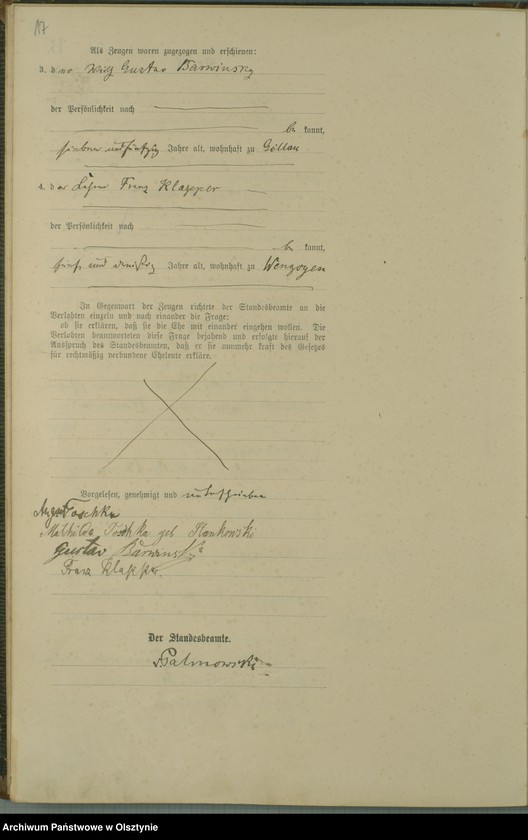 17
Als Zeugen waren zugezogen und erschienen:
3. der Gustav Barwinsky
der Persönlichkeit nach
be kannt,
sieben und fünfzig Jahre alt, wohnhaft zu Göllau
4. der Franz Klapper
der Persönlichkeit nach
be kannt,
fünf und dreißig Jahre alt, wohnhaft zu Wengoyen
In Gegenwart der Zeugen richtete der Standesbeamte an die
Verlobten einzeln und nach einander die Frage:
ob sie erklären, daß sie die Ehe mit einander eingehen wollen. Die
Verlobten beantworteten diese Frage bejahend und erfolgte hierauf der
Ausspruch des Standesbeamten, daß er sie nunmehr kraft des Gesetzes
für rechtmäßig verbundene Eheleute erkläre.
Vorgelesen, genehmigt und unterschrieben
August Toschka
Mathilda Toschka geb
Gustav Barwinski
Franz Klapper.
Der Standesbeamte.
Palmowski
Archiwum Państwowe w Olsztynie